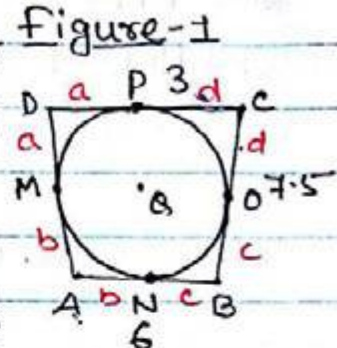 Figure-1
P 3
D a d C
a d
M Q O 7.5
b c
A b N c B
6